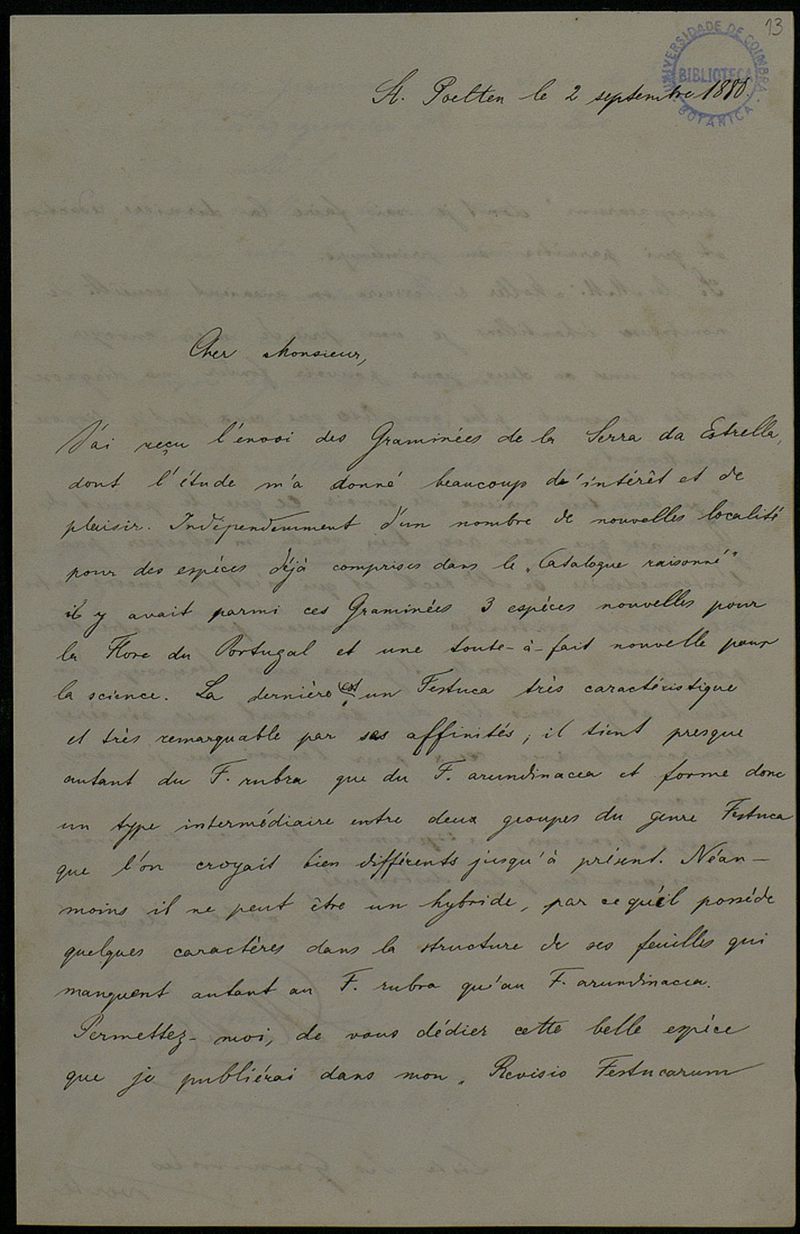 13
UNIVERSIDADE DE COIMBRA
BIBLIOTECA
BOTANICA
St. Poelten le 2 septembre 1880
Cher Monsieur,
J'ai reçu l'envoi des Graminées de la Serra da Estrella,
dont l'étude m'a donné beaucoup de'intérêt et de
plaisir. Indépendemment d'un nombre de nouvelles localité
pour des espéces déjà comprises dans le „Catalogue raisonné"
il y avait parmi ces Graminées 3 espéces nouvelles pour
la Flore du Portugal et une toute-à-fait nouvelle pour
la science. La dernière est un Festuca très caractéristique
et très remarquable par ses affinités; il tient presque
autant du F. rubra que du F. arundinacea et forme donc
un type intermédiaire entre deux groupes du genre Festuca
que l'on croyait bien différents jusqu'à présent. Néan-
moins il ne peut être un hybride, par ce qu'il posséde
quelques caractères dans la structure de ses feuilles qui
manquent autant au F. rubra qu'au F. arundinacea.
Permettez-moi, de vous dédier cette belle espéce
que je publiérai dans mon „Revisio Festucarum